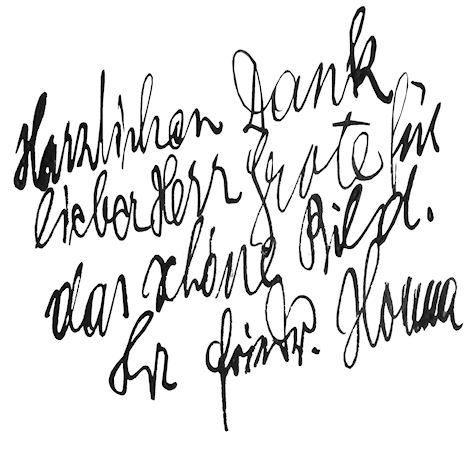 Herzlichen Dank
lieber Herr Grote für
das schöne Bild.
Ihr